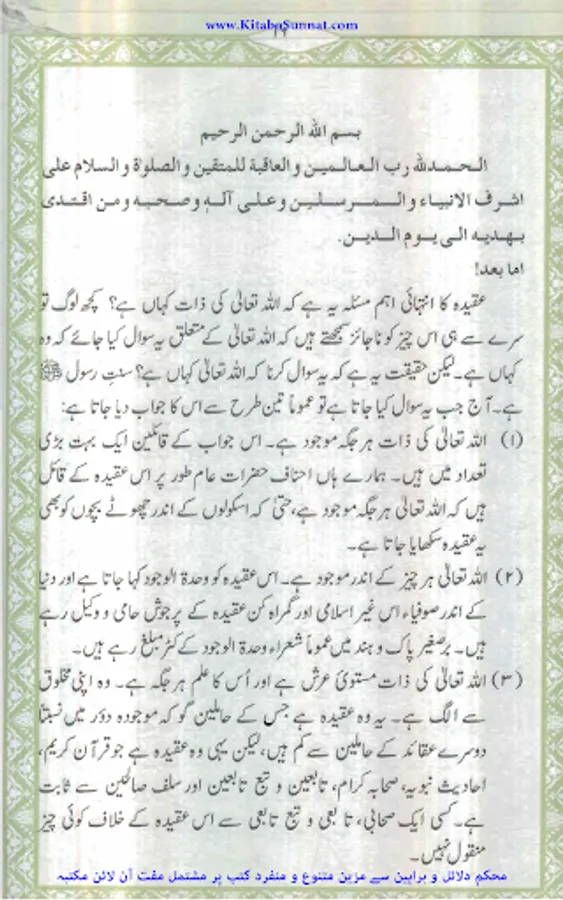 www.KitaboSunnat.com
۱۹
بسم الله الرحمن الرحیم
الحمدلله رب العالمین والعاقبة للمتقین والصلوة والسلام علی
اشرف الانبیاء والمرسلین وعلی آلہٖ وصحبہ ومن اقتدی
بہدیہ الی یوم الدین.
اما بعد!
عقیدہ کا انتہائی اہم مسئلہ یہ ہے کہ اللہ تعالیٰ کی ذات کہاں ہے؟ کچھ لوگ تو
سرے سے ہی اس چیز کو ناجائز سمجھتے ہیں کہ اللہ تعالیٰ کے متعلق یہ سوال کیا جائے کہ وہ
کہاں ہے۔ لیکن حقیقت یہ ہے کہ یہ سوال کرنا کہ اللہ تعالیٰ کہاں ہے؟ سنتِ رسول ﷺ
ہے۔ آج جب یہ سوال کیا جاتا ہے تو عموماً تین طرح سے اس کا جواب دیا جاتا ہے:
(۱) اللہ تعالیٰ کی ذات ہر جگہ موجود ہے۔ اس جواب کے قائلین ایک بہت بڑی
تعداد میں ہیں۔ ہمارے ہاں احناف حضرات عام طور پر اس عقیدہ کے قائل
ہیں کہ اللہ تعالیٰ ہر جگہ موجود ہے، حتیٰ کہ اسکولوں کے اندر چھوٹے بچوں کو بھی
یہ عقیدہ سکھایا جاتا ہے۔
(۲) اللہ تعالیٰ ہر چیز کے اندر موجود ہے۔ اس عقیدہ کو وحدۃ الوجود کہا جاتا ہے اور دنیا
کے اندر صوفیاء اس غیر اسلامی اور گمراہ کن عقیدہ کے پرجوش حامی و وکیل رہے
ہیں۔ برصغیر پاک و ہند میں عموماً شعراء وحدۃ الوجود کے کٹر مبلغ رہے ہیں۔
(۳) اللہ تعالیٰ کی ذات مستویٔ عرش ہے اور اُس کا علم ہر جگہ ہے۔ وہ اپنی مخلوق
سے الگ ہے۔ یہ وہ عقیدہ ہے جس کے حاملین گو کہ موجودہ دور میں نسبتاً
دوسرے عقائد کے حاملین سے کم ہیں، لیکن یہی وہ عقیدہ ہے جو قرآن کریم،
احادیث نبویہ، صحابہ کرام، تابعین و تبع تابعین اور سلف صالحین سے ثابت
ہے۔ کسی ایک صحابی، تابعی و تبع تابعی سے اس عقیدہ کے خلاف کوئی چیز
منقول نہیں۔
محکم دلائل و براہین سے مزین متنوع و منفرد کتب پر مشتمل مفت آن لائن مکتبہ